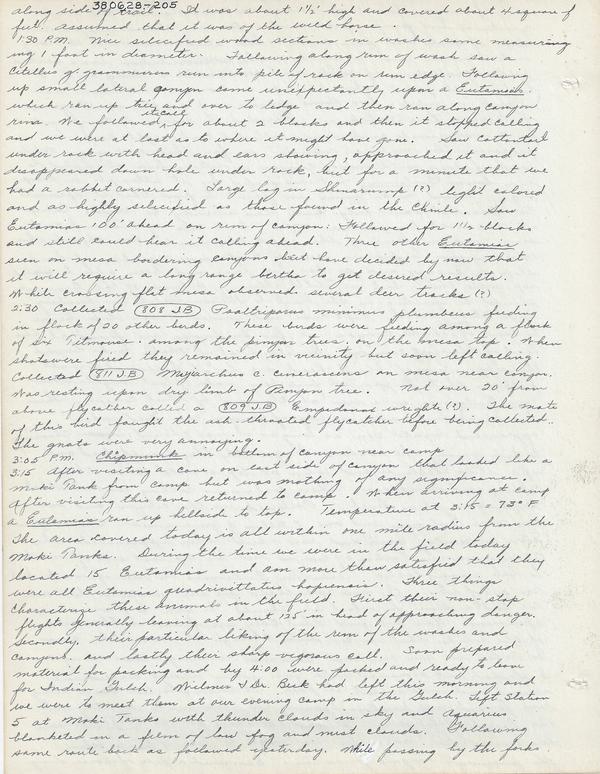 380628-205
along side of trail. It was about 1½' high and covered about 4 square of
feet. Assumed that it was of the wild horse.
1:30 P.M. Nice silicified wood sections in washes some measuring
ing 1 foot in diameter. Following along rim of wash saw a
Citellus g. grammurus run into pile of rock on rim edge. Following
up small lateral canyon came unexpectantly upon a Eutamias.
which ran up tree and over to ledge and then ran along canyon
rim. We followed its call for about 2 blocks and then it stopped calling
and we were at loss as to where it might have gone. Saw Cottontail
under rock with head and ears showing, approached it and it
disappeared down hole under rock, but for a minute that we
had a rabbit cornered. Large log in Shinarump (?) light colored
and as highly silicified as those found in the Chinle. Saw
Eutamias 100' ahead on rim of canyon: Followed for 1½ blocks
and still could hear it calling ahead. Three other Eutamias
seen on mesa bordering canyons but have decided by now that
it will require a long range bertha to get desired results.
While crossing flat mesa observed several deer tracks (?)
2:30 Collected (808 JB) Psaltriparus minimus plumbeus feeding
in flock of 20 other birds. These birds were feeding among a flock
of six Titmouse. among the pinyon trees, on the mesa top. When
shots were fired they remained in vicinity but soon left calling.
Collected (811 J.B) Myiarchus c. cinerascens on mesa near canyon.
Was resting upon dry limb of Pinyon tree. Not over 20' from
above flycatcher collected a (809 J.B) Empidonax wrightii (?). The mate
of this bird fought the ash throated flycatcher before being collected..
The gnats were very annoying.
3:05 P.M. Chipmunk in bottom of canyon near camp
3:15 After visiting a cave on east side of canyon that looked like a
Moki Tank from camp but was nothing of any significance.
After visiting this cave returned to camp. When arriving at camp
a Eutamias ran up hillside to top. Temperature at 3:15 = 73° F
The area covered today is all within one mile radius from the
Moki Tanks. During the time we were in the field today
located 15 Eutamias and am more than satisfied that they
were all Eutamias quadrivittatus hopiensis. Three things
characterize these animals in the field. First their non-stop
flights generally leaving at about 125' in head of approaching danger.
Secondly, their particular liking of the rim of the washes and
canyons. and lastly their sharp vegorous call. Soon prepared
material for packing and by 4:00 were packed and ready to leave
for Indian Gulch. Widmer & Dr. Beck had left this morning and
we were to meet them at our evening camp in the Gulch. Left Station
5 at Moki Tanks with thunder clouds in sky and Aquarius
blanketed in a film of low fog and mist clouds. Following
same route back as followed yesterday. While passing by the forks